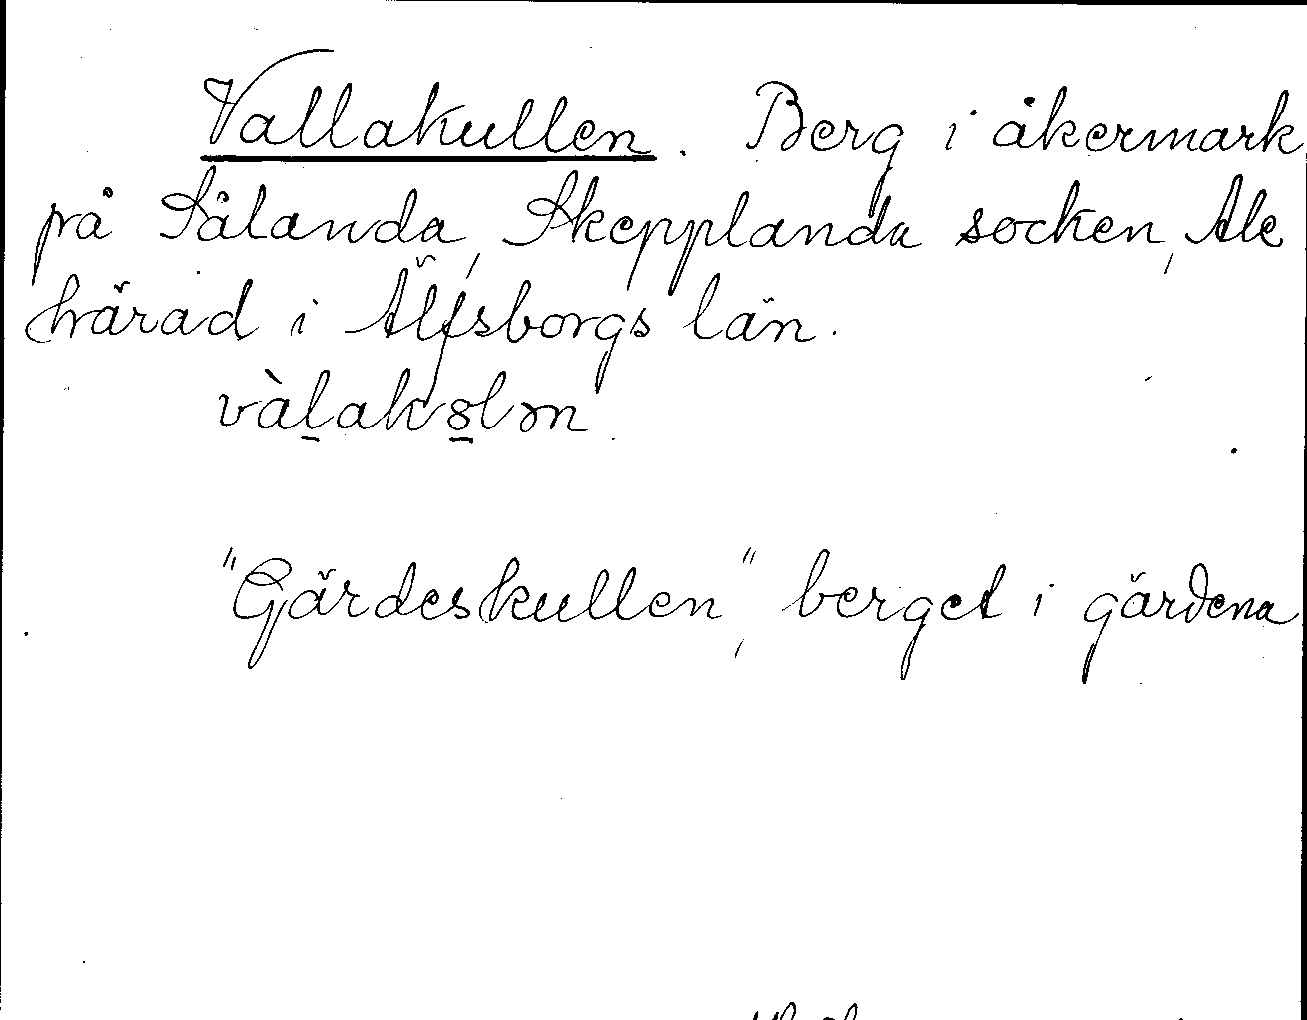 Vallakullen. Berg i åkermark
på Sålanda, Skepplanda socken, Ale
härad i Älfsborgs län.
"Gärdeskullen", berget i gärdena